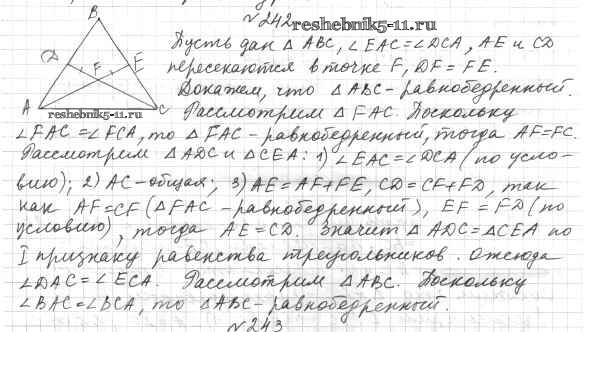 №242
reshebnik5-11.ru
B
D
F
E
A
C
reshebnik5-11.ru
Пусть дан △ ABC, ∠EAC=∠DCA, AE и CD
пересекаются в точке F, DF = FE.
Докажем, что △ABC-равнобедренный.
Рассмотрим △ FAC. Поскольку
∠FAC=∠FCA, то △FAC-равнобедренный, тогда AF=FC.
Рассмотрим △ADC и △CEA: 1) ∠EAC=∠DCA (по усло-
вию); 2) AC-общая; 3) AE=AF+FE, CD=CF+FD, так
как AF=CF (△FAC -равнобедренный), EF = FD (по
условию), тогда AE=CD. Значит △ADC=△CEA по
I признаку равенства треугольников. Отсюда
∠DAC=∠ECA. Рассмотрим △ABC. Поскольку
∠BAC=∠BCA, то △ABC-равнобедренный.
№243